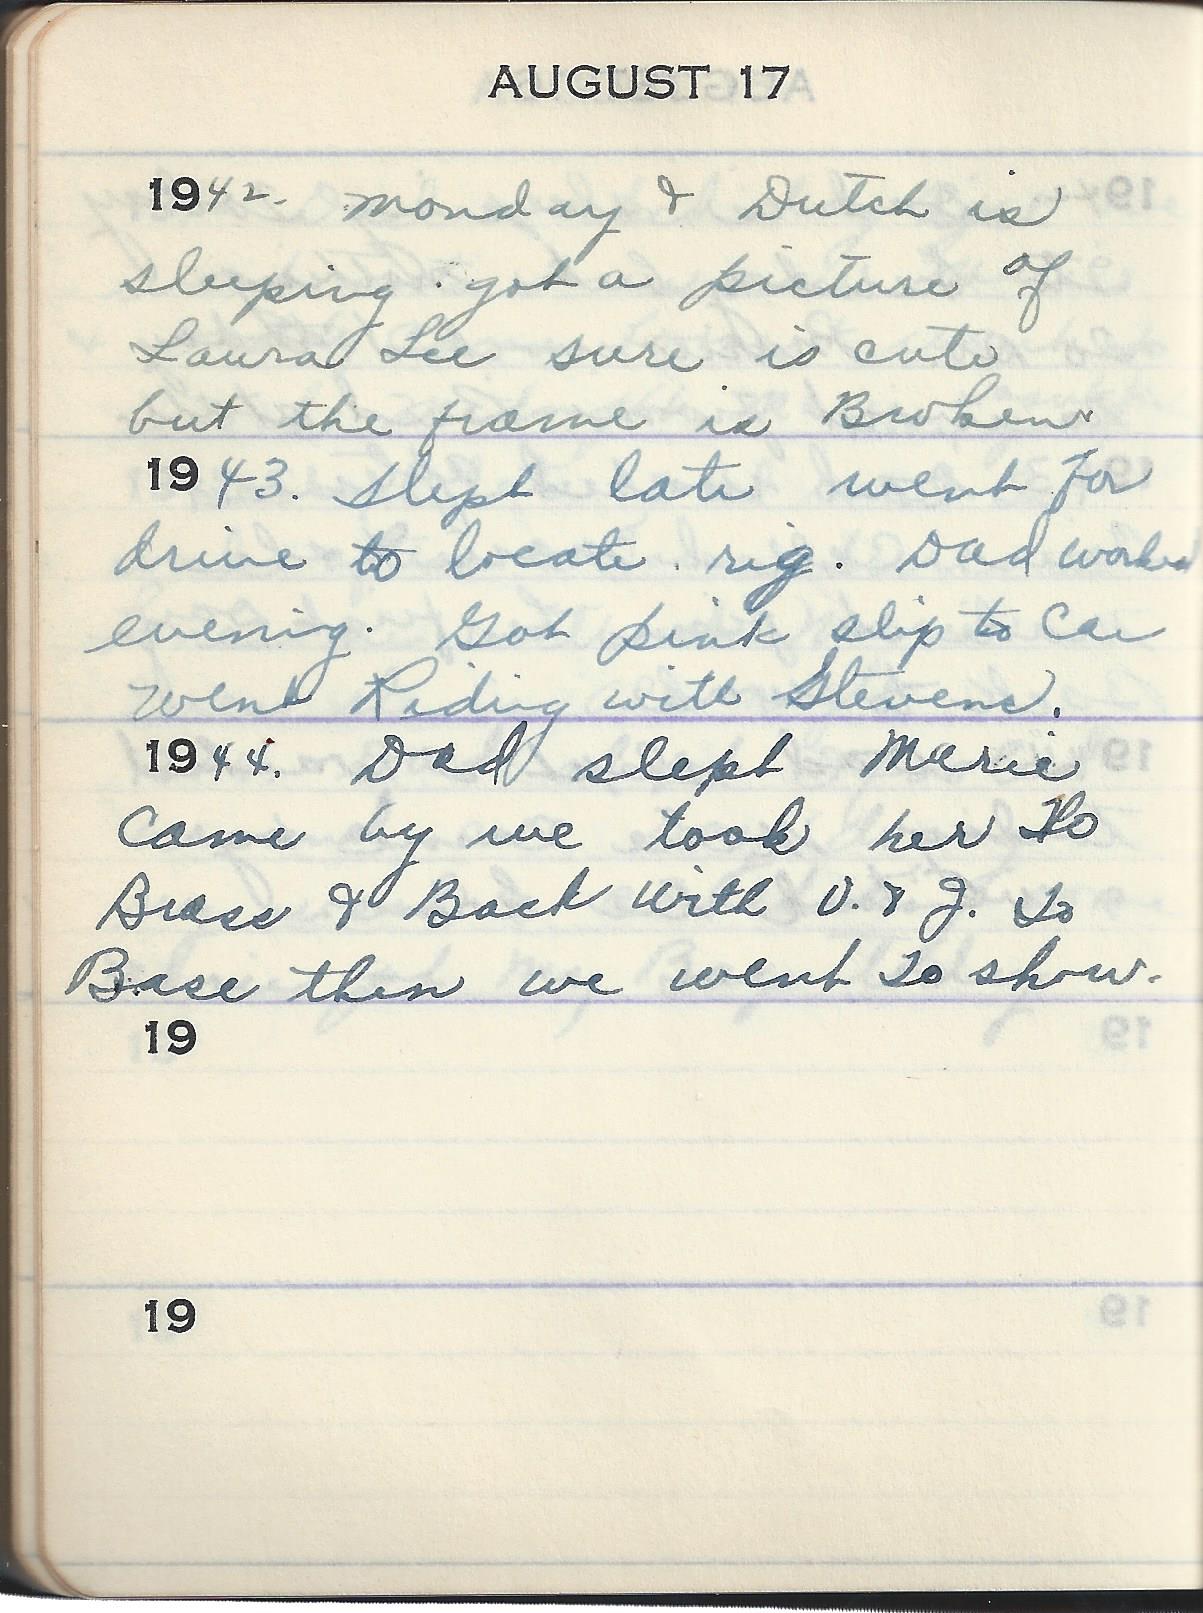 AUGUST 17
1942. Monday & Dutch is
sleeping. got a picture of
Laura Lee sure is cute
but the frame is Broken.
1943. Slept late went for
drive to locate rig. Dad worked
evening. Got pink slip to Car
went Riding with Stevens.
1944. Dad slept Marie
came by we took her to
Brass & Back with V. & J. to
Base then we went to show.
19
19